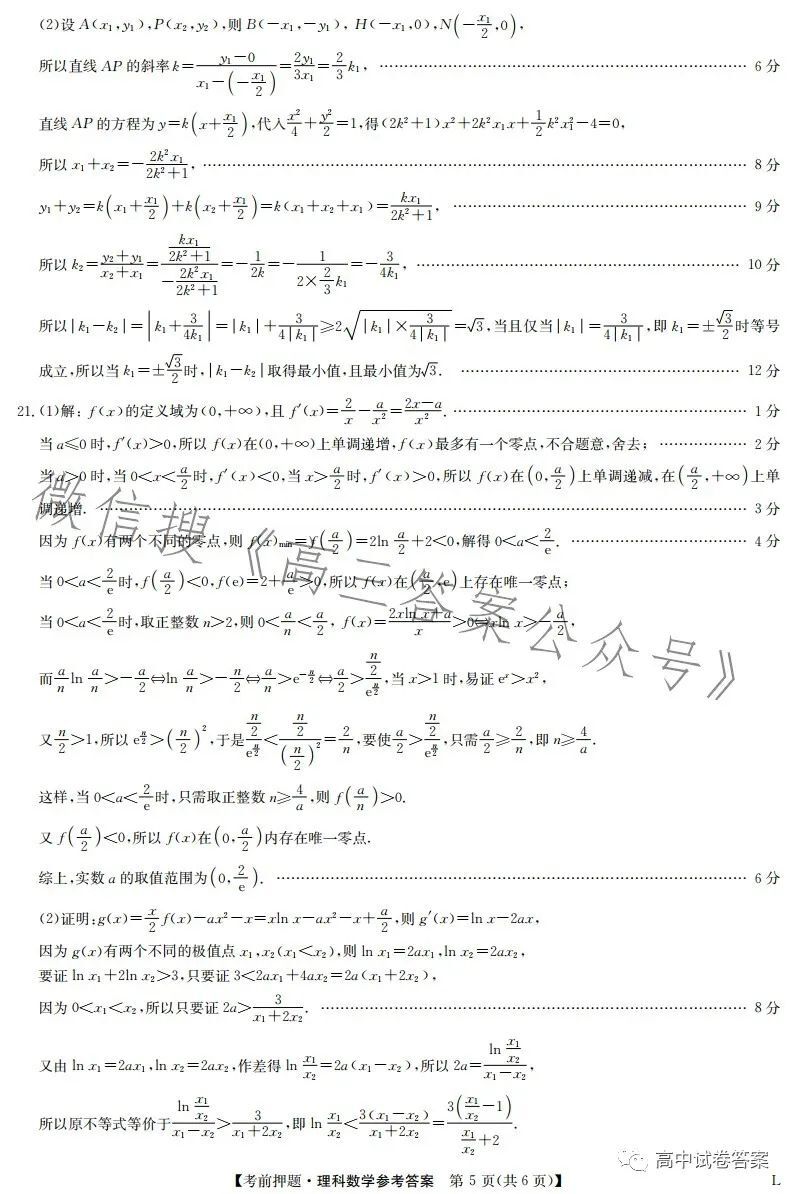 (2)设 A(x₁,y₁),P(x₂,y₂),则 B(-x₁,-y₁), H(-x₁,0),N(-x₁/2,0),
所以直线 AP 的斜率 k=(y₁-0)/(x₁-(-x₁/2))=2y₁/3x₁=2/3 k₁, …… 6 分
直线 AP 的方程为 y=k(x+x₁/2),代入 x²/4+y²/2=1,得(2k²+1)x²+2k²x₁x+1/2 k²x₁²-4=0,
所以 x₁+x₂=-2k²x₁/(2k²+1), …… 8 分
y₁+y₂=k(x₁+x₁/2)+k(x₂+x₁/2)=k(x₁+x₂+x₁)=kx₁/(2k²+1), …… 9 分
所以 k₂=(y₂+y₁)/(x₂+x₁)=(kx₁/(2k²+1))/(-2k²x₁/(2k²+1))=-1/2k=-1/(2×2/3 k₁)=-3/4k₁, …… 10 分
所以|k₁-k₂|=|k₁+3/4k₁|=|k₁|+3/4|k₁|≥2√(|k₁|×3/4|k₁|)=√3,当且仅当|k₁|=3/4|k₁|,即 k₁=±√3/2时等号
成立,所以当 k₁=±√3/2时,|k₁-k₂|取得最小值,且最小值为√3. …… 12 分
21.(1)解: f(x)的定义域为(0,+∞),且 f′(x)=2/x-a/x²=(2x-a)/x². …… 1 分
当 a≤0 时,f′(x)>0,所以 f(x)在(0,+∞)上单调递增,f(x)最多有一个零点,不合题意,舍去; …… 2 分
当 a>0 时,当 0<x<a/2时,f′(x)<0,当 x>a/2时,f′(x)>0,所以 f(x)在(0,a/2)上单调递减,在(a/2,+∞)上单
调递增. …… 3 分
因为 f(x)有两个不同的零点,则 f(x)min=f(a/2)=2ln a/2+2<0,解得 0<a<2/e. …… 4 分
当 0<a<2/e时,f(a/2)<0,f(e)=2+a/e>0,所以 f(x)在(a/2,e)上存在唯一零点;
当 0<a<2/e时,取正整数 n>2,则 0<a/n<a/2, f(x)=(2xln x+a)/x>0⇔xln x>-a/2,
而a/n ln a/n>-a/2⇔ln a/n>-n/2⇔a/n>e^(-n/2)⇔a/2>(n/2)/e^(n/2),当 x>1 时,易证 eˣ>x²,
又n/2>1,所以 e^(n/2)>(n/2)²,于是(n/2)/e^(n/2)<(n/2)/(n/2)²=2/n,要使a/2>(n/2)/e^(n/2),只需a/2≥2/n,即 n≥4/a.
这样,当 0<a<2/e时,只需取正整数 n≥4/a,则 f(a/n)>0.
又 f(a/2)<0,所以 f(x)在(0,a/2)内存在唯一零点.
综上,实数 a 的取值范围为(0,2/e). …… 6 分
(2)证明:g(x)=x/2 f(x)-ax²-x=xln x-ax²-x+a/2,则 g′(x)=ln x-2ax,
因为 g(x)有两个不同的极值点 x₁,x₂(x₁<x₂),则 ln x₁=2ax₁,ln x₂=2ax₂,
要证 ln x₁+2ln x₂>3,只要证 3<2ax₁+4ax₂=2a(x₁+2x₂),
因为 0<x₁<x₂,所以只要证 2a>3/(x₁+2x₂). …… 8 分
又由 ln x₁=2ax₁,ln x₂=2ax₂,作差得 ln x₁/x₂=2a(x₁-x₂),所以 2a=(ln x₁/x₂)/(x₁-x₂),
所以原不等式等价于(ln x₁/x₂)/(x₁-x₂)>3/(x₁+2x₂),即 ln x₁/x₂<3(x₁-x₂)/(x₁+2x₂)=3(x₁/x₂-1)/(x₁/x₂+2).
【考前押题·理科数学参考答案 第 5 页(共 6 页)】 L
微信搜《高三答案公众号》
高中试卷答案